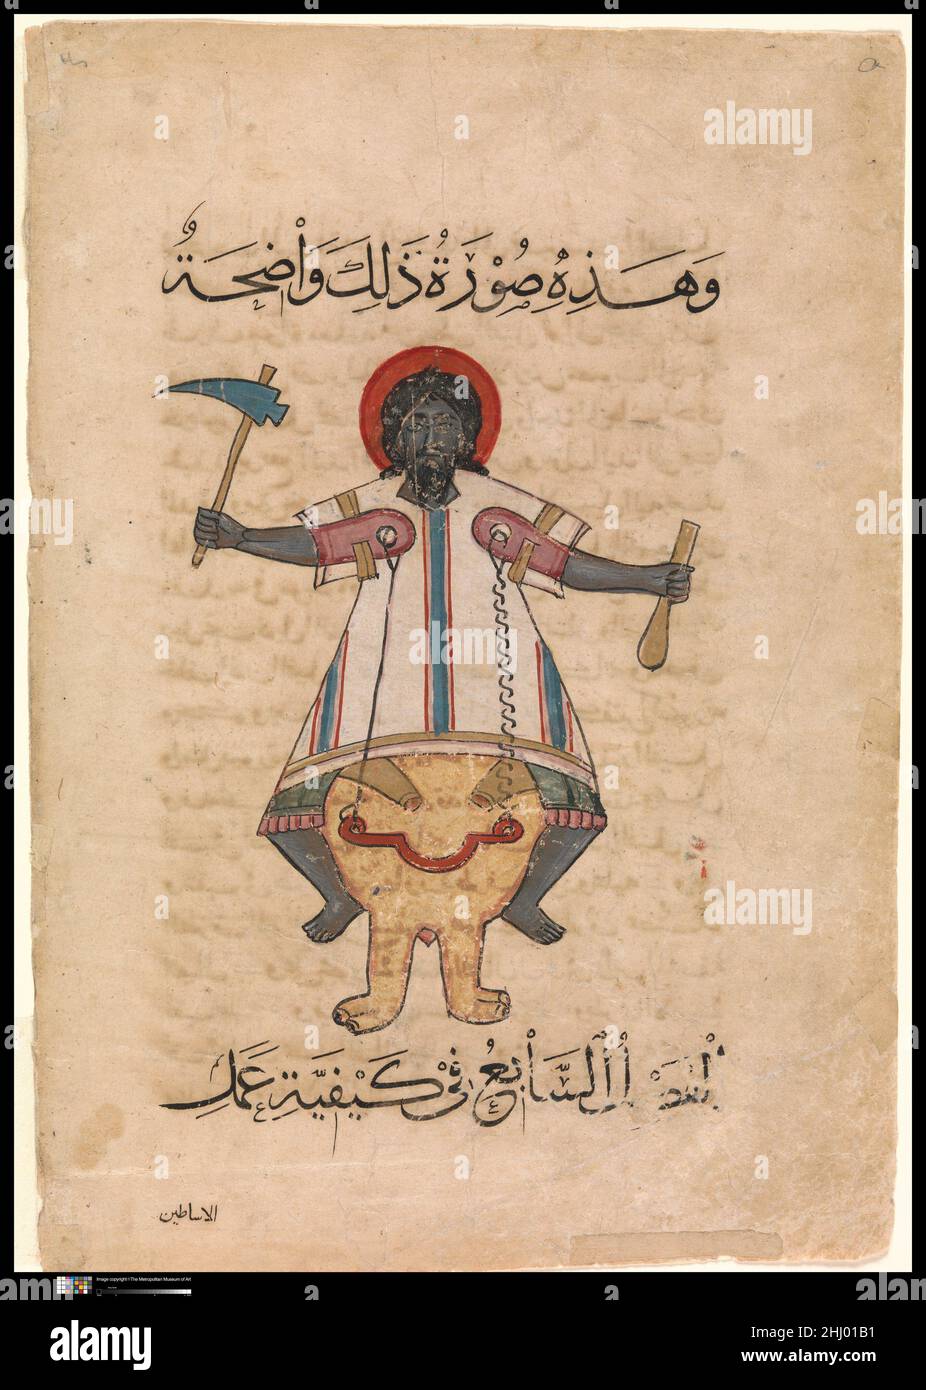 وَهَذِهِ صُوْرَةُ ذَلِكَ وَاْضِحَةٌ
الفصل السَّاْبِعُ فِيْ كَيْفِيَّةِ عَمَلِ
الاساطين
Image copyright ©The Metropolitan Museum of Art
alamy
Image ID: 2HJ01B1
www.alamy.com